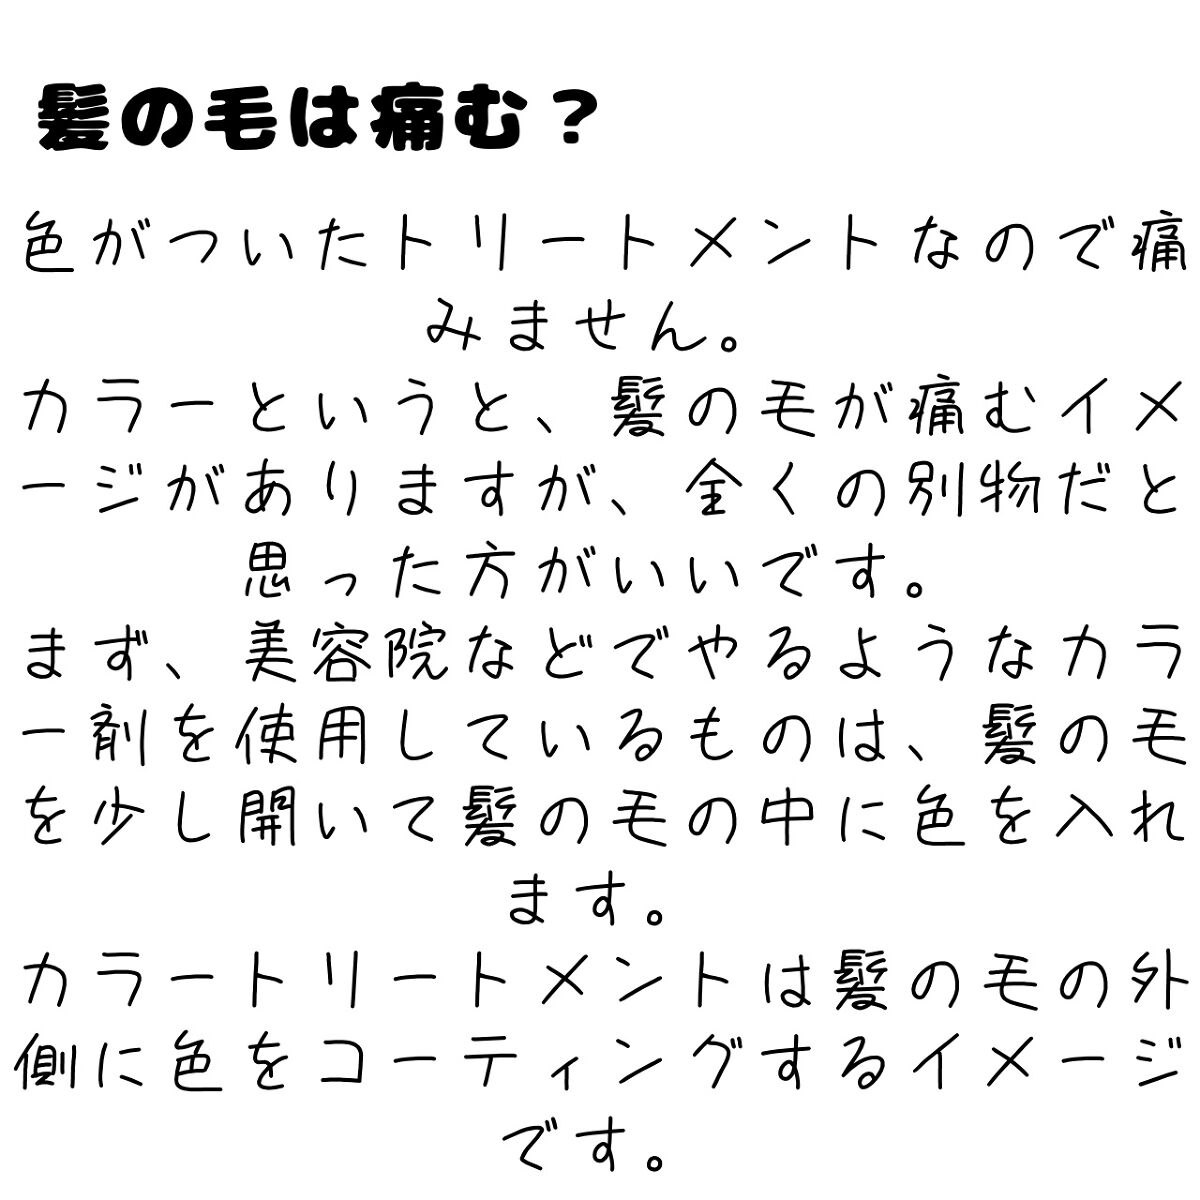 髪の毛は痛む？
色がついたトリートメントなので痛
みません。
カラーというと、髪の毛が痛むイメ
ージがありますが、全くの別物だと
思った方がいいです。
まず、美容院などでやるようなカラ
ー剤を使用しているものは、髪の毛
を少し開いて髪の毛の中に色を入れ
ます。
カラートリートメントは髪の毛の外
側に色をコーティングするイメージ
です。